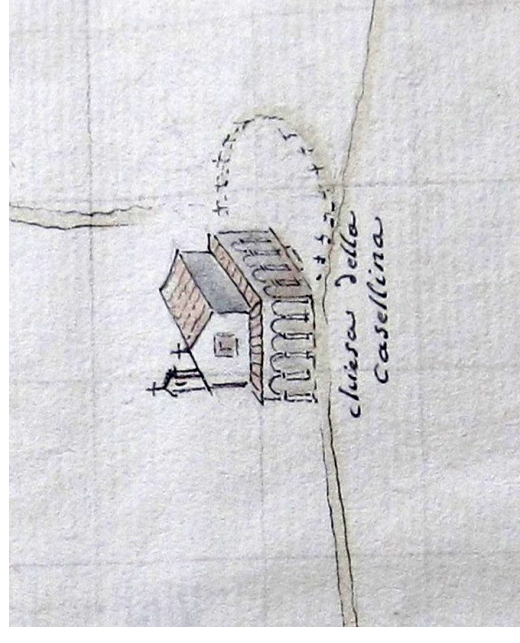 chiesa della
casellina